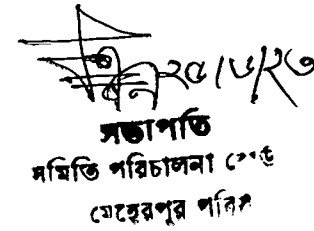 ২৫/৬/২৩
সভাপতি
সমিতি পরিচালনা বোর্ড
মেহেরপুর পবিস